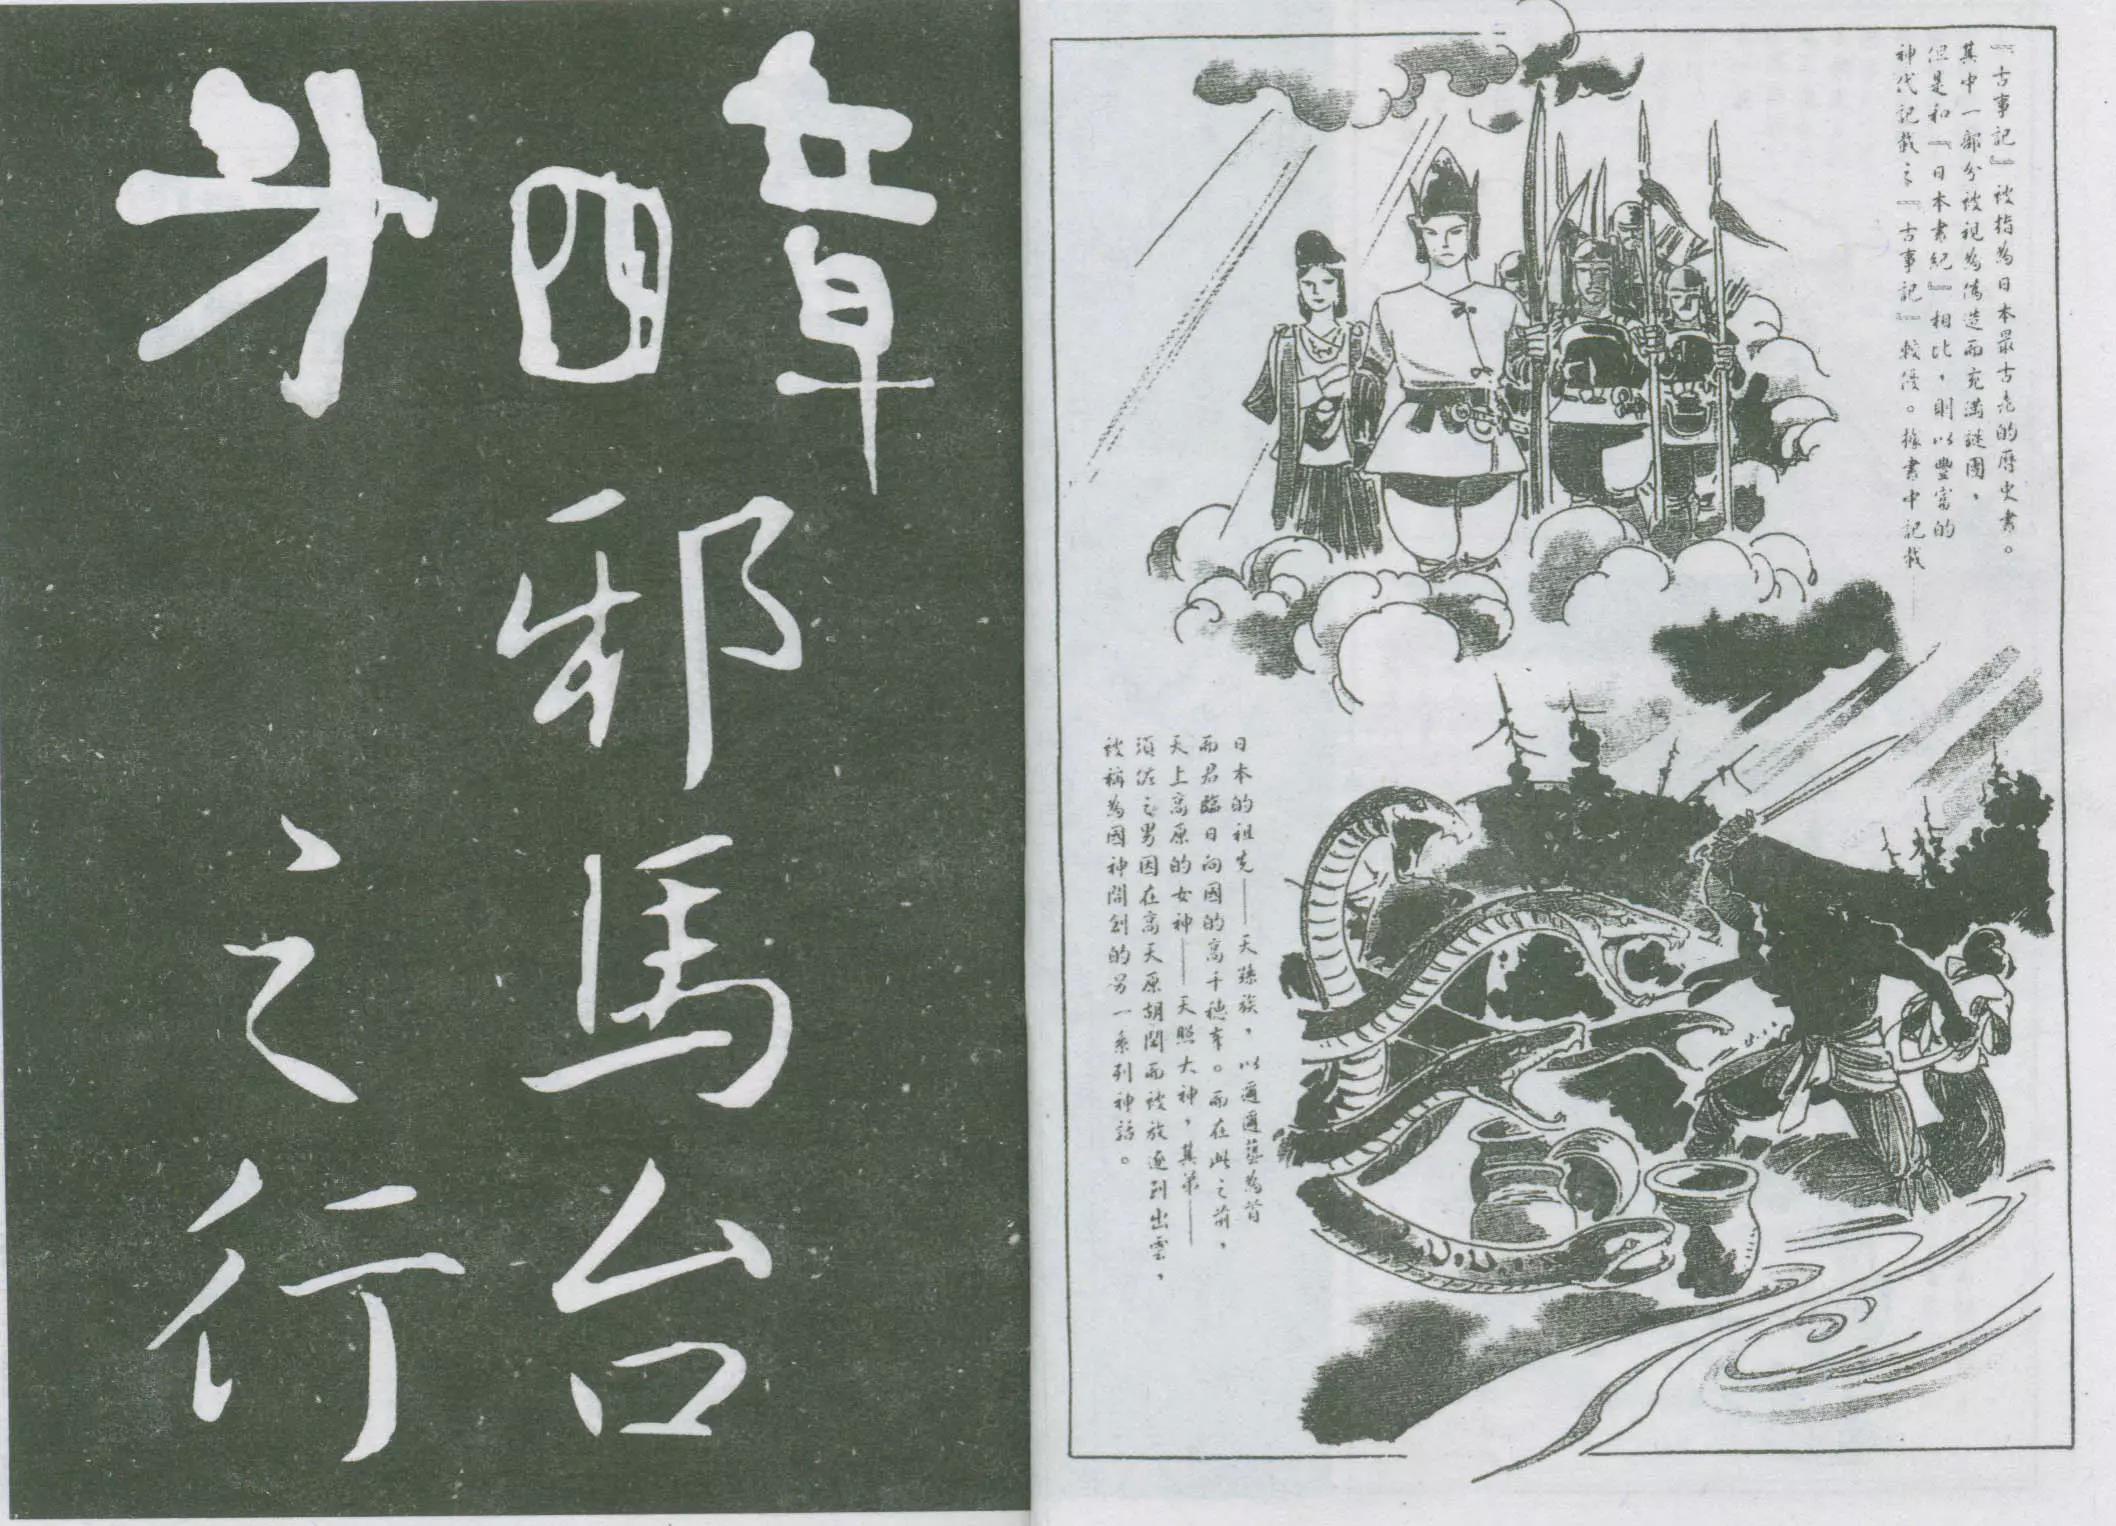 『古事記』被指為日本最古老的歷史書。
其中一部分被視為偽造而充滿謎團，
但是和『日本書紀』相比，則以豐富的
神代記載之『古事記』較優。據書中記載——
日本的祖先——天孫族，以邇邇藝為首
而君臨日向國的高千穗峯。而在此之前，
天上高原的女神——天照大神，其弟——
須佐之男因在高天原胡鬧而被放逐到出雲，
被稱為國神開創的另一系列神話。
第四章
邪馬台
之行